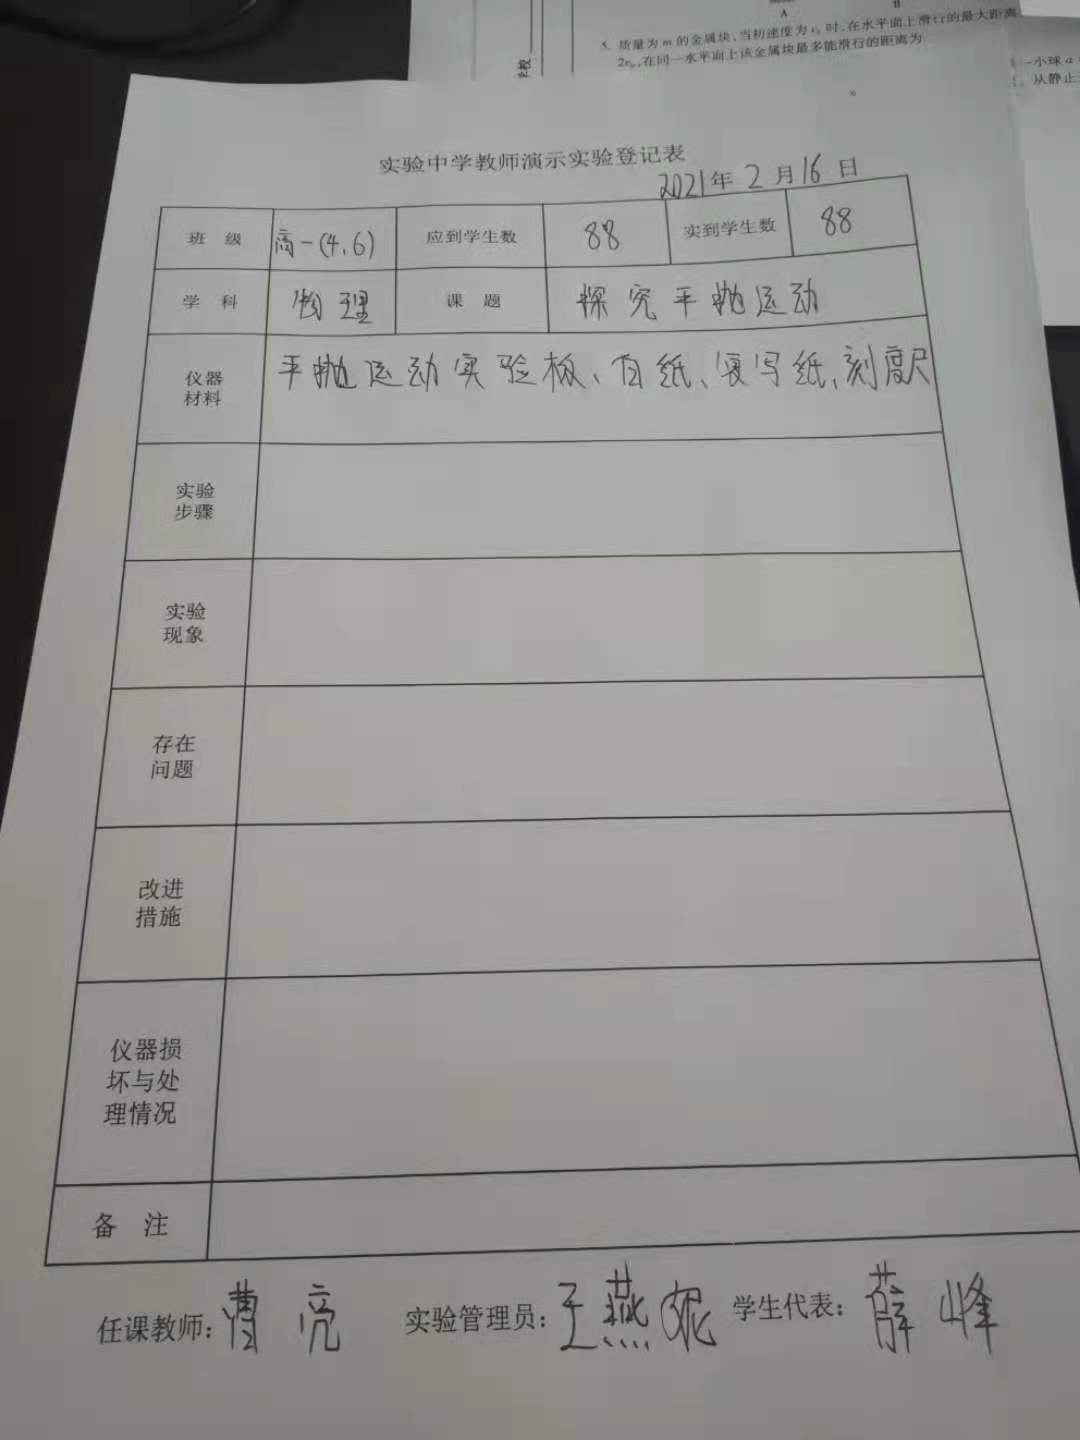 A
B
5. 质量为 m 的金属块,当初速度为 v₀ 时,在水平面上滑行的最大距离
2v₀,在同一水平面上该金属块最多能滑行的距离为
一小球 a
从静止
实验中学教师演示实验登记表
2021年 2 月 16 日
班 级 高一(4,6) 应到学生数 88 实到学生数 88
学 科 物理 课 题 探究平抛运动
仪器
材料
平抛运动实验板、白纸、复写纸、刻度尺
实验
步骤
实验
现象
存在
问题
改进
措施
仪器损
坏与处
理情况
备 注
任课教师: 曹亮 实验管理员: 王燕妮 学生代表: 薛峰